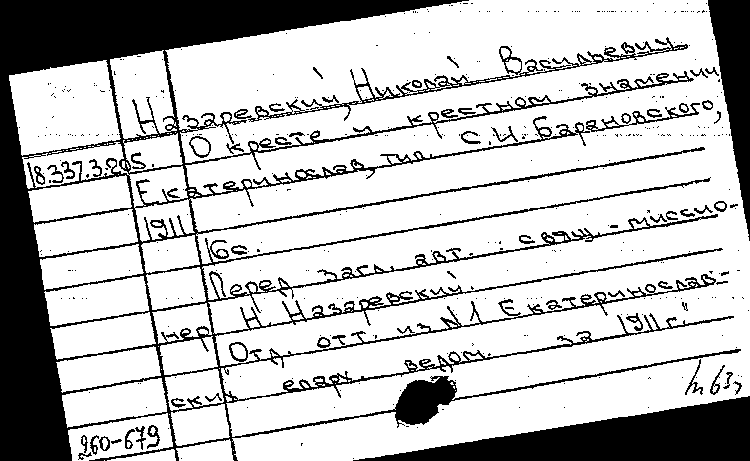 Назаревский, Николай Васильевич
18.337.3.205. О кресте и крестном знамении
Екатеринослав, тип. С.И. Барановского,
1911
16с.
Перед загл. авт.: свящ.-миссио-
нер Н. Назаревский.
Отд. отт. из N1 Екатеринослав-
ских епарх. ведом. за 1911г."
260-679